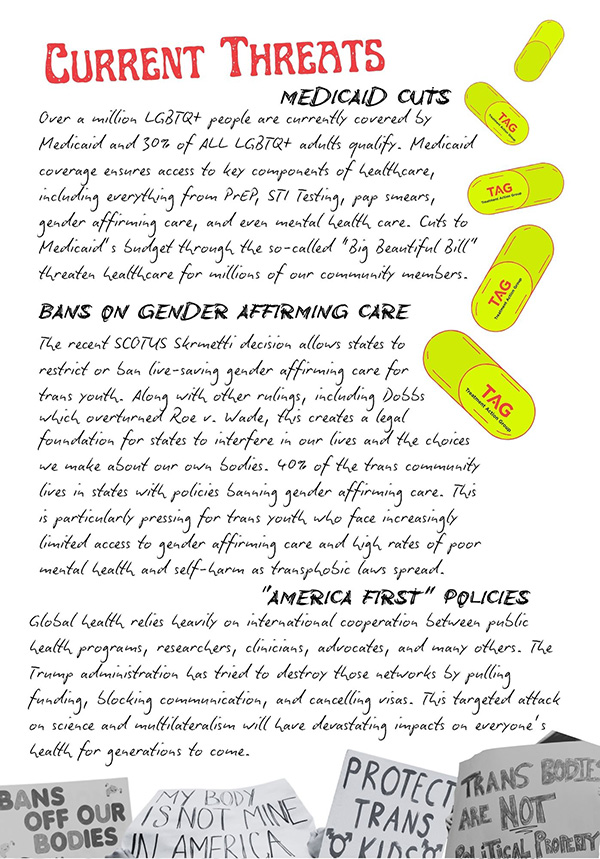 CURRENT THREATS
MEDICAID CUTS
Over a million LGBTQ+ people are currently covered by
Medicaid and 30% of ALL LGBTQ+ adults qualify. Medicaid
coverage ensures access to key components of healthcare,
including everything from PrEP, STI Testing, pap smears,
gender affirming care, and even mental health care. Cuts to
Medicaid's budget through the so-called "Big Beautiful Bill"
threaten healthcare for millions of our community members.
BANS ON GENDER AFFIRMING CARE
The recent SCOTUS Skrmetti decision allows states to
restrict or ban live-saving gender affirming care for
trans youth. Along with other rulings, including Dobbs
which overturned Roe v. Wade, this creates a legal
foundation for states to interfere in our lives and the choices
we make about our own bodies. 40% of the trans community
lives in states with policies banning gender affirming care. This
is particularly pressing for trans youth who face increasingly
limited access to gender affirming care and high rates of poor
mental health and self-harm as transphobic laws spread.
"AMERICA FIRST" POLICIES
Global health relies heavily on international cooperation between public
health programs, researchers, clinicians, advocates, and many others. The
Trump administration has tried to destroy those networks by pulling
funding, blocking communication, and cancelling visas. This targeted attack
on science and multilateralism will have devastating impacts on everyone's
health for generations to come.
TAG
Treatment Action Group
TAG
Treatment Action Group
TAG
Treatment Action Group
TAG
Treatment Action Group
BANS
OFF OUR
BODIES
MY BODY
IS NOT MINE
IN AMERICA
PROTECT
TRANS
KIDS
TRANS BODIES
ARE NOT
POLITICAL PROPERTY